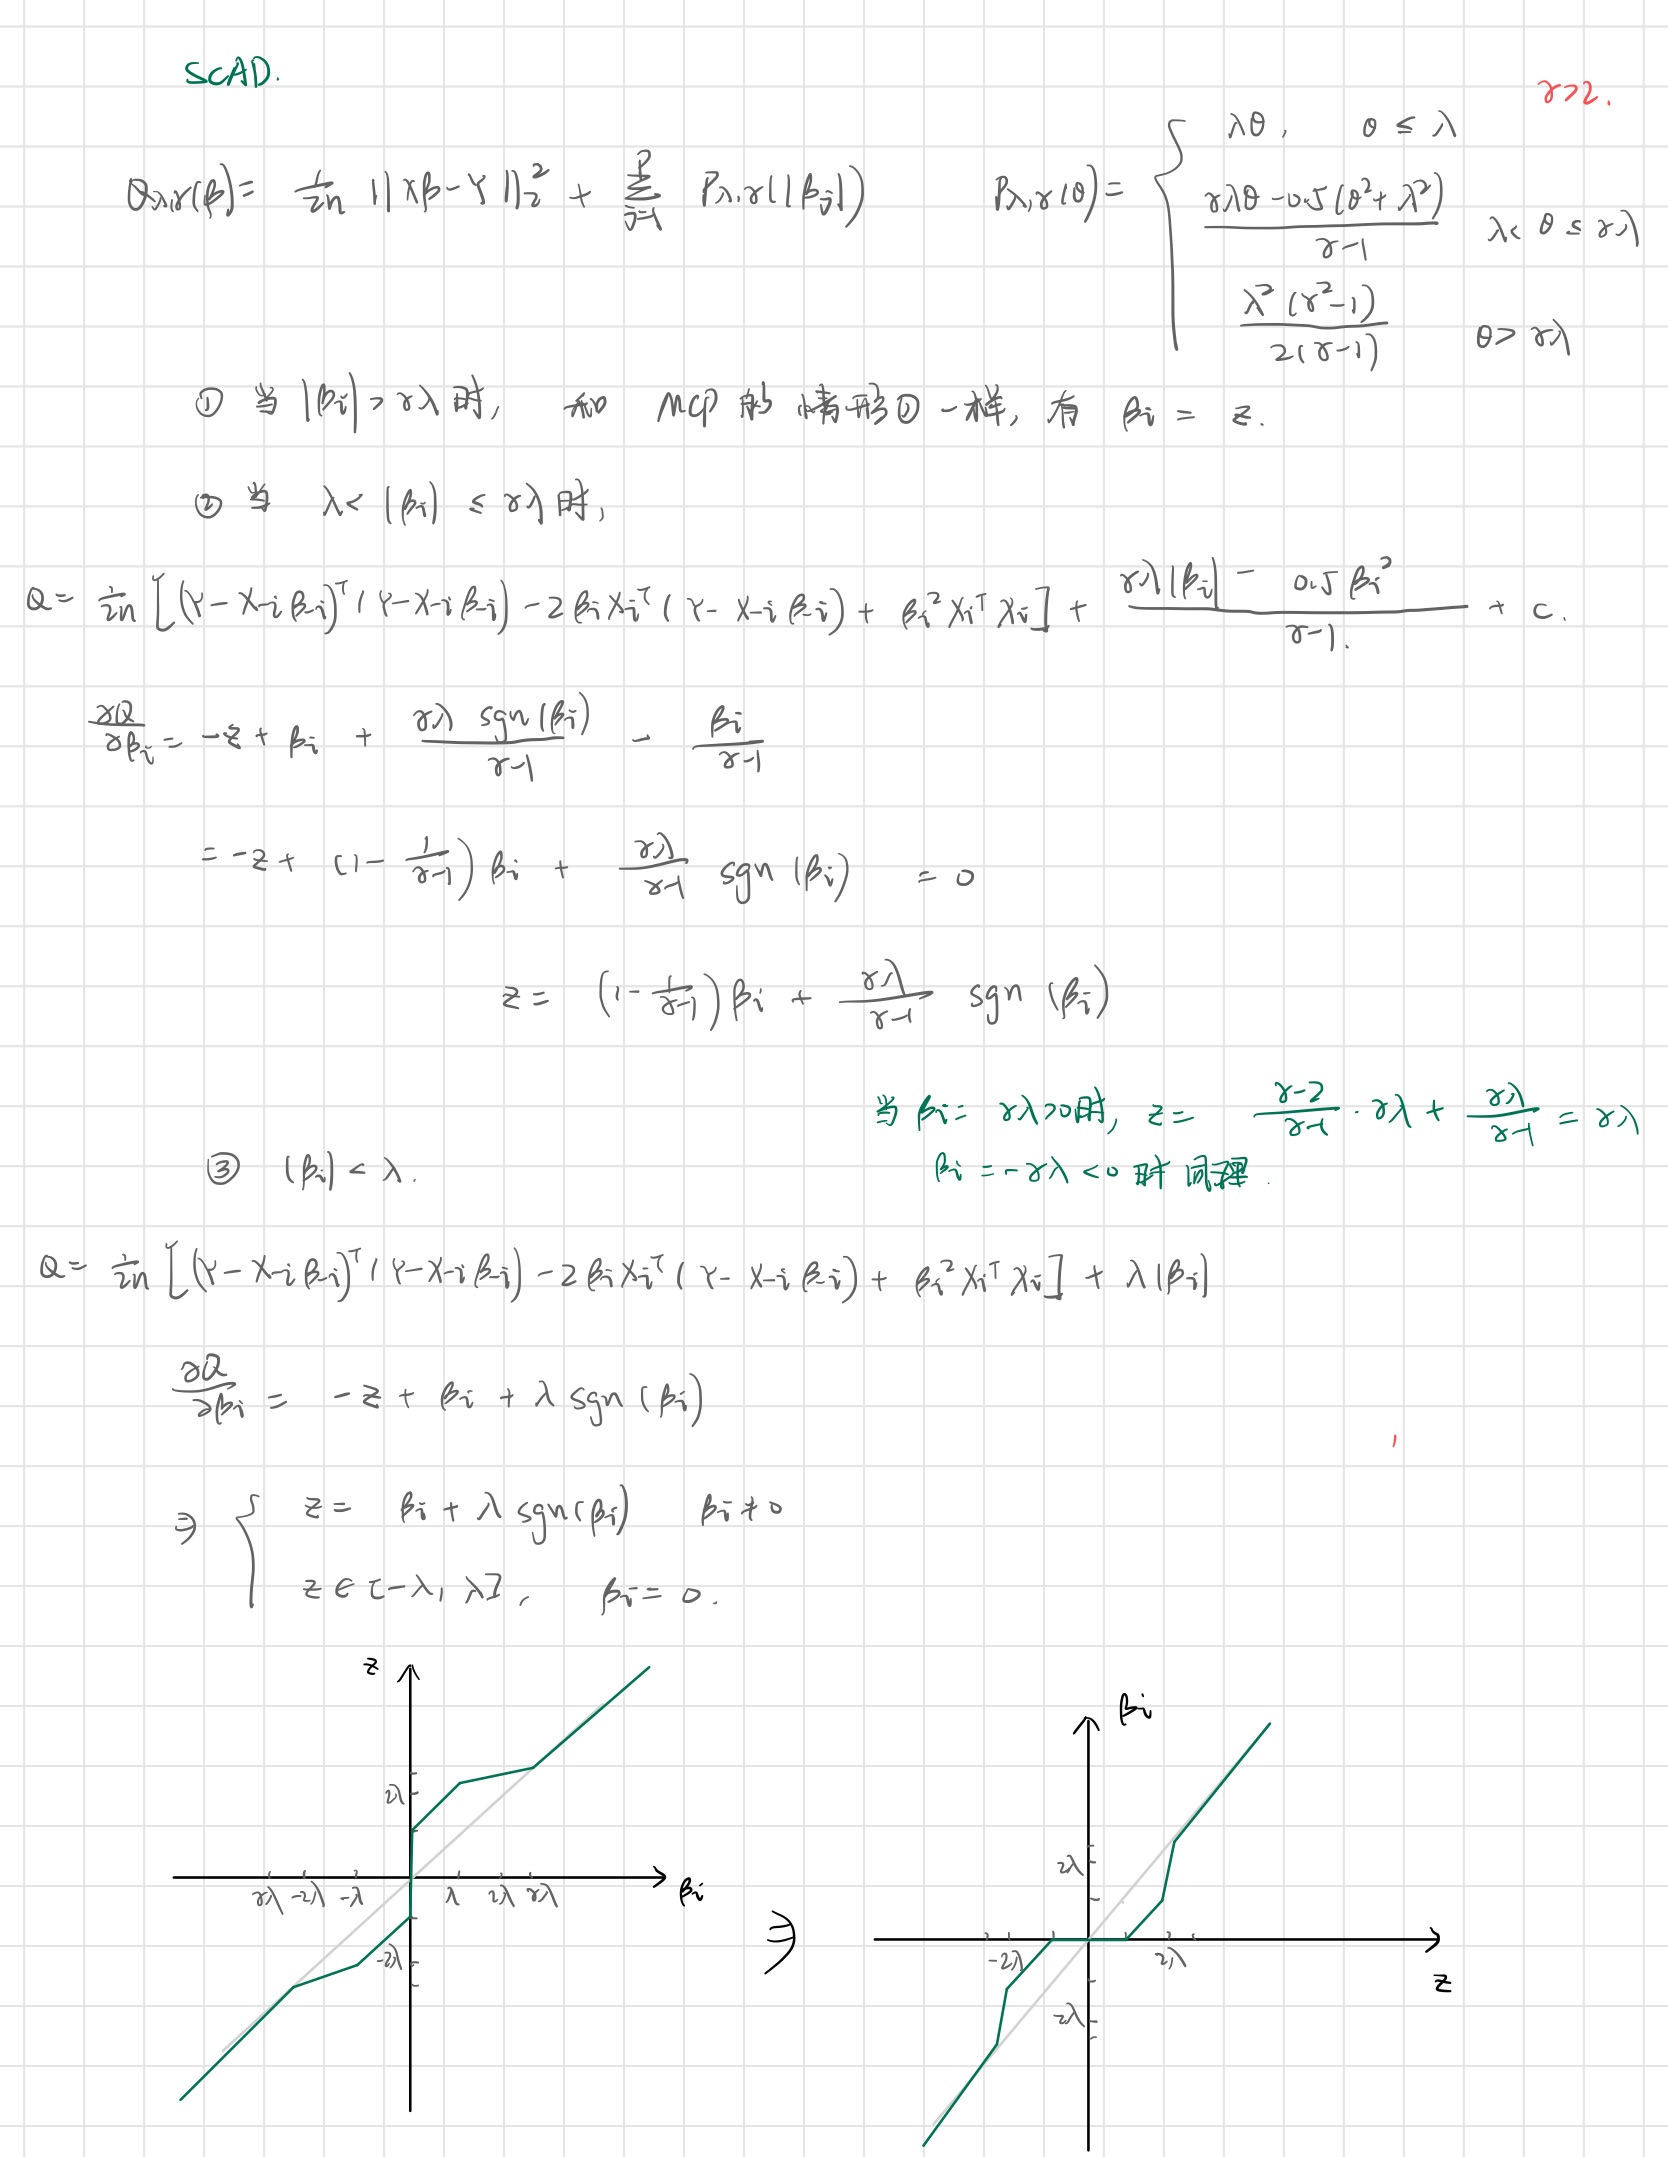 SCAD.
γ>2.
Q_{λ,γ}(β) = 1/2n ||Xβ-Y||_2^2 + Σ_{j=1}^{P} P_{λ,γ}(|β_j|)
P_{λ,γ}(θ) = { λθ, θ ≤ λ
(γλθ - 0.5(θ^2+λ^2))/(γ-1) λ< θ ≤ γλ
λ^2(γ^2-1)/(2(γ-1)) θ> γλ
① 当 |β_i| > γλ 时, 和 MCP 的 情形① 一样, 有 β_i = z.
② 当 λ< |β_i| ≤ γλ 时,
Q = 1/2n [(Y-X_{-i}β_{-i})^T (Y-X_{-i}β_{-i}) - 2β_i X_i^T (Y-X_{-i}β_{-i}) + β_i^2 X_i^T X_i] + (γλ|β_i| - 0.5β_i^2)/(γ-1) + c.
∂Q/∂β_i = -z + β_i + γλ sgn(β_i)/(γ-1) - β_i/(γ-1)
= -z + (1 - 1/(γ-1)) β_i + γλ/(γ-1) sgn(β_i) = 0
z = (1 - 1/(γ-1)) β_i + γλ/(γ-1) sgn(β_i)
当 β_i = γλ>0时, z = (γ-2)/(γ-1) · γλ + γλ/(γ-1) = γλ
β_i = -γλ <0 时 同理.
③ |β_i| < λ.
Q = 1/2n [(Y-X_{-i}β_{-i})^T (Y-X_{-i}β_{-i}) - 2β_i X_i^T (Y-X_{-i}β_{-i}) + β_i^2 X_i^T X_i] + λ|β_i|
∂Q/∂β_i = -z + β_i + λ sgn(β_i)
⇒ { z = β_i + λ sgn(β_i) β_i ≠ 0
z ∈ [-λ, λ], β_i = 0.
z
2λ
γλ -2λ -λ λ 2λ γλ
β_i
-2λ
⇒
β_i
2λ
-2λ 2λ
z
-2λ